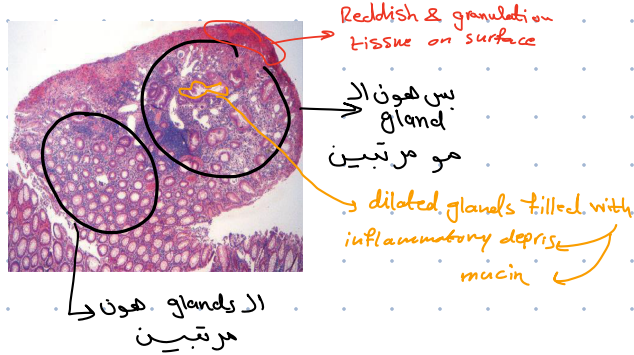 Reddish & granulation
tissue on surface
بس هون الـ
gland
مو مرتبين
dilated glands filled with
inflammatory depris
mucin
الـ glands هون
مرتبين